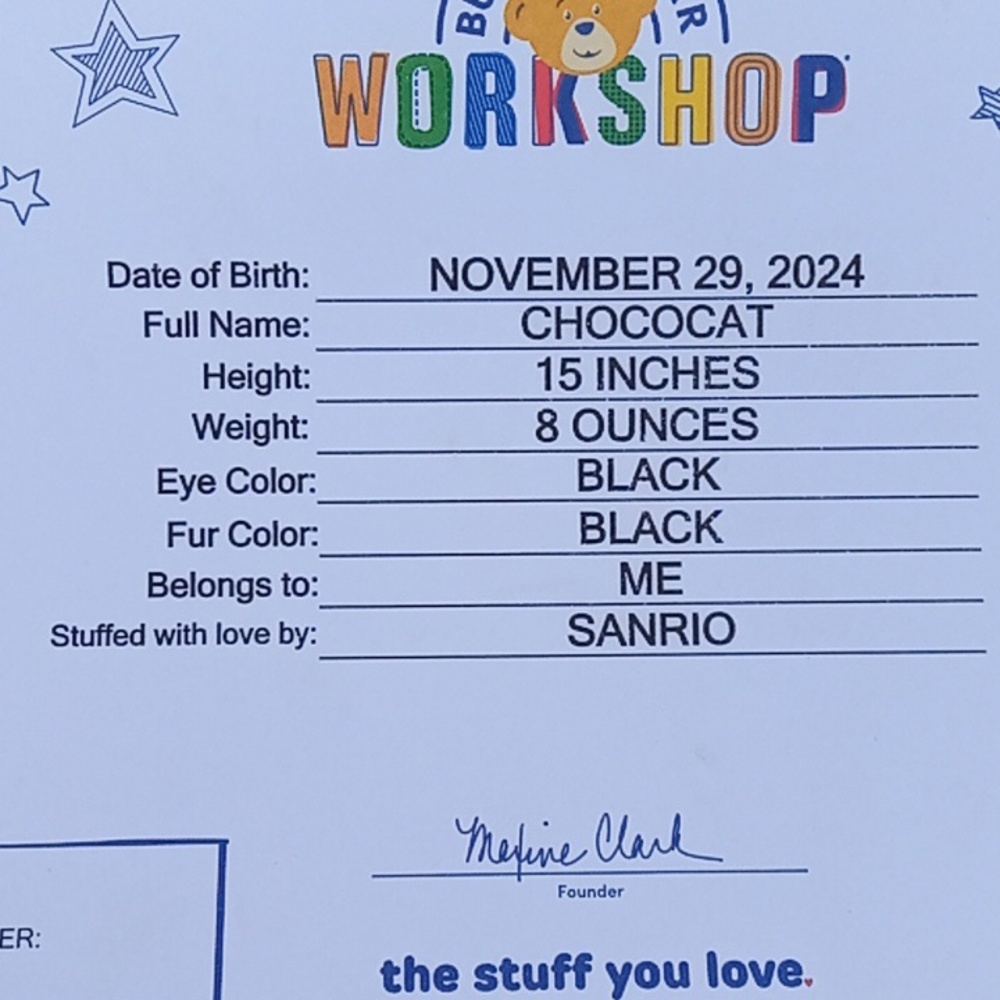 WORKSHOP
Date of Birth: NOVEMBER 29, 2024
Full Name: CHOCOCAT
Height: 15 INCHES
Weight: 8 OUNCES
Eye Color: BLACK
Fur Color: BLACK
Belongs to: ME
Stuffed with love by: SANRIO
Maxine Clark
Founder
ER:
the stuff you love.